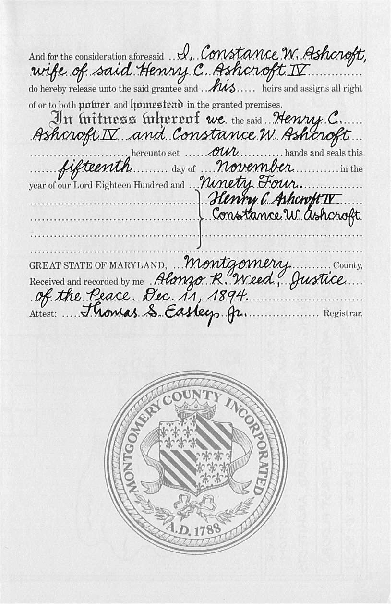 And for the consideration aforesaid . . I, Constance W. Ashcroft,
wife of said Henry C. Ashcroft IV
do hereby release unto the said grantee and . . . his . . . . . heirs and assigns all right
of or to both power and homestead in the granted premises.
In witness whereof we, the said . . Henry C.
Ashcroft IV and Constance W. Ashcroft
hereunto set our hands and seals this
fifteenth day of November in the
year of our Lord Eighteen Hundred and Ninety Four.
Henry C Ashcroft IV
Constance W. Ashcroft
GREAT STATE OF MARYLAND, Montgomery County,
Received and recorded by me Alonzo R. Weed, Justice
of the Peace. Dec. 11, 1894.
Attest: Thomas S. Easley, Jr. Registrar.
MONTGOMERY COUNTY INCORPORATED
A.D. 1788